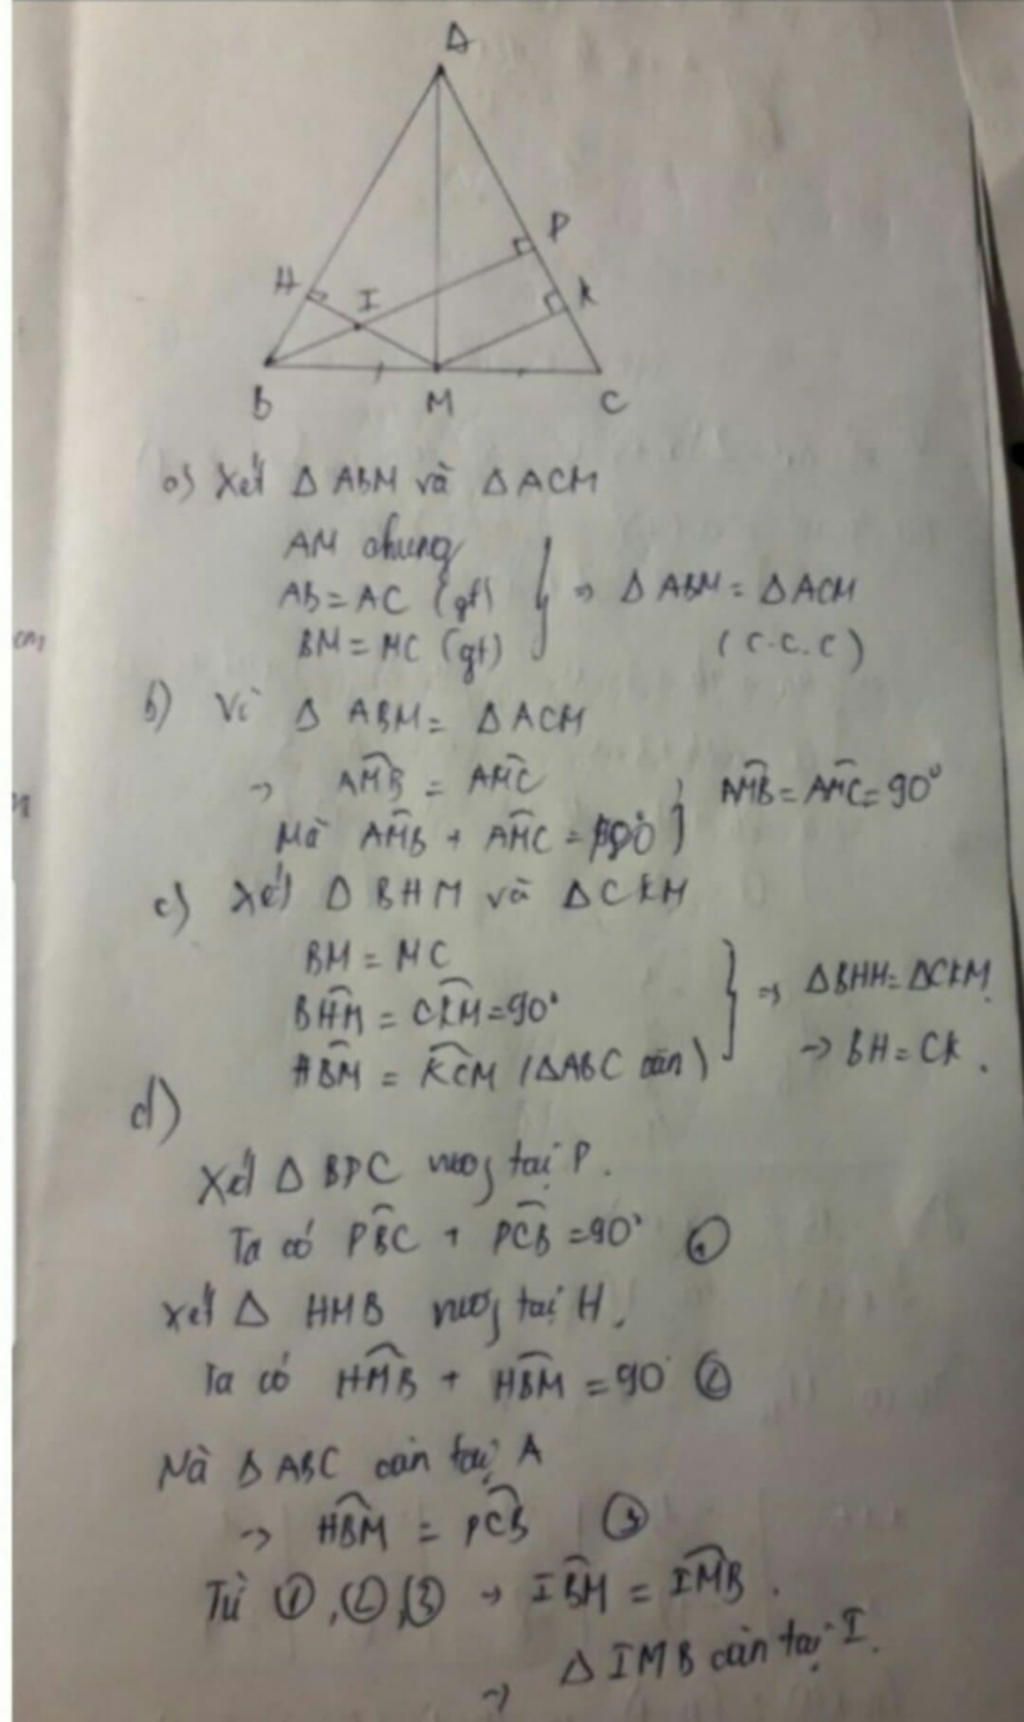 A
P
H
I
K
B
M
C
a) Xét Δ ABM và Δ ACM
AM chung
AB = AC (gt) } => Δ ABM = Δ ACM
BM = MC (gt) (c.c.c)
b) Vì Δ ABM = Δ ACM
-> AMB = AMC } AMB = AMC = 90°
Mà AMB + AMC = 180°
c) Xét Δ BHM và Δ CKM
BM = MC
BHM = CKM = 90° } => ΔBHM = ΔCKM
HBM = KCM (ΔABC cân) -> BH = CK.
d)
Xét Δ BPC vuông tại P.
Ta có PBC + PCB = 90° ①
Xét Δ HMB vuông tại H,
Ta có HMB + HBM = 90 ②
Mà Δ ABC cân tại A
-> HBM = PCB ③
Từ ①, ②, ③ -> IBM = IMB.
-> Δ IMB cân tại I.